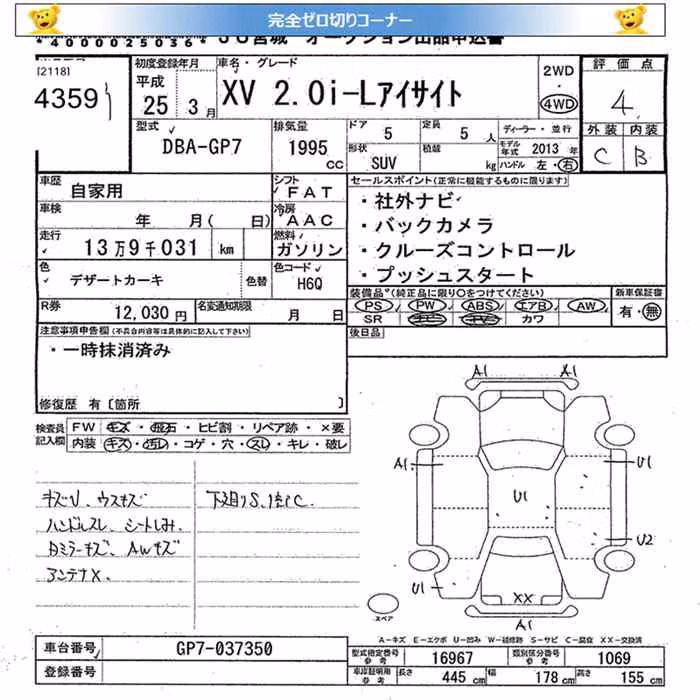 完全ゼロ切りコーナー
*4000025036* JU宮城 オークション出品申込書
[2118]
4359
初度登録年月
平成
25 3月
車名・グレード
XV 2.0i-Lアイサイト
2WD
・
4WD
評価点
4
外装 内装
C B
型式
DBA-GP7
排気量
1995
CC
ドア 5
定員 5 人
ディーラー・並行
形状 SUV
積載 kg
モデル年式 2013 年
ハンドル 左・右
車歴
自家用
シフト
FAT
セールスポイント(正常に機能するものに限ります)
・社外ナビ
・バックカメラ
・クルーズコントロール
・プッシュスタート
車検
年 月( 日)
冷房
AAC
走行
13万9千031 km
燃料
ガソリン
色
デザートカーキ
色替
色コード
H6Q
装備品(純正品に限り○をつけてください)
新車保証書
PS PW ABS エアB AW
有・無
SR ナビ TV カワ
R券
12,030円
名変通知期限
月 日
後日品
注意事項申告欄(不具合内容等は具体的に記入して下さい)
・一時抹消済み
修復歴 有〔箇所 〕
検査員記入欄
FW キズ・飛石・ヒビ割・リペア跡・×要
内装 キズ・汚れ・コゲ・穴・スレ・キレ・破レ
キズU、ウスキズ
ハンドルスレ、シートしみ、
Dミラーキズ、AWキズ
アンテナX、
下廻りS、
A1 A1
A1
U1
U1
U2
U1
XX
A1
スペア
A-キズ E-エクボ U-凹み W-補修跡 S-サビ C-腐食 XX-交換済
車台番号
GP7-037350
登録番号
型式指定番号 参考 16967
類別区分番号 参考 1069
車庫証明用 参考 長さ 445 cm 幅 178 cm 高さ 155 cm